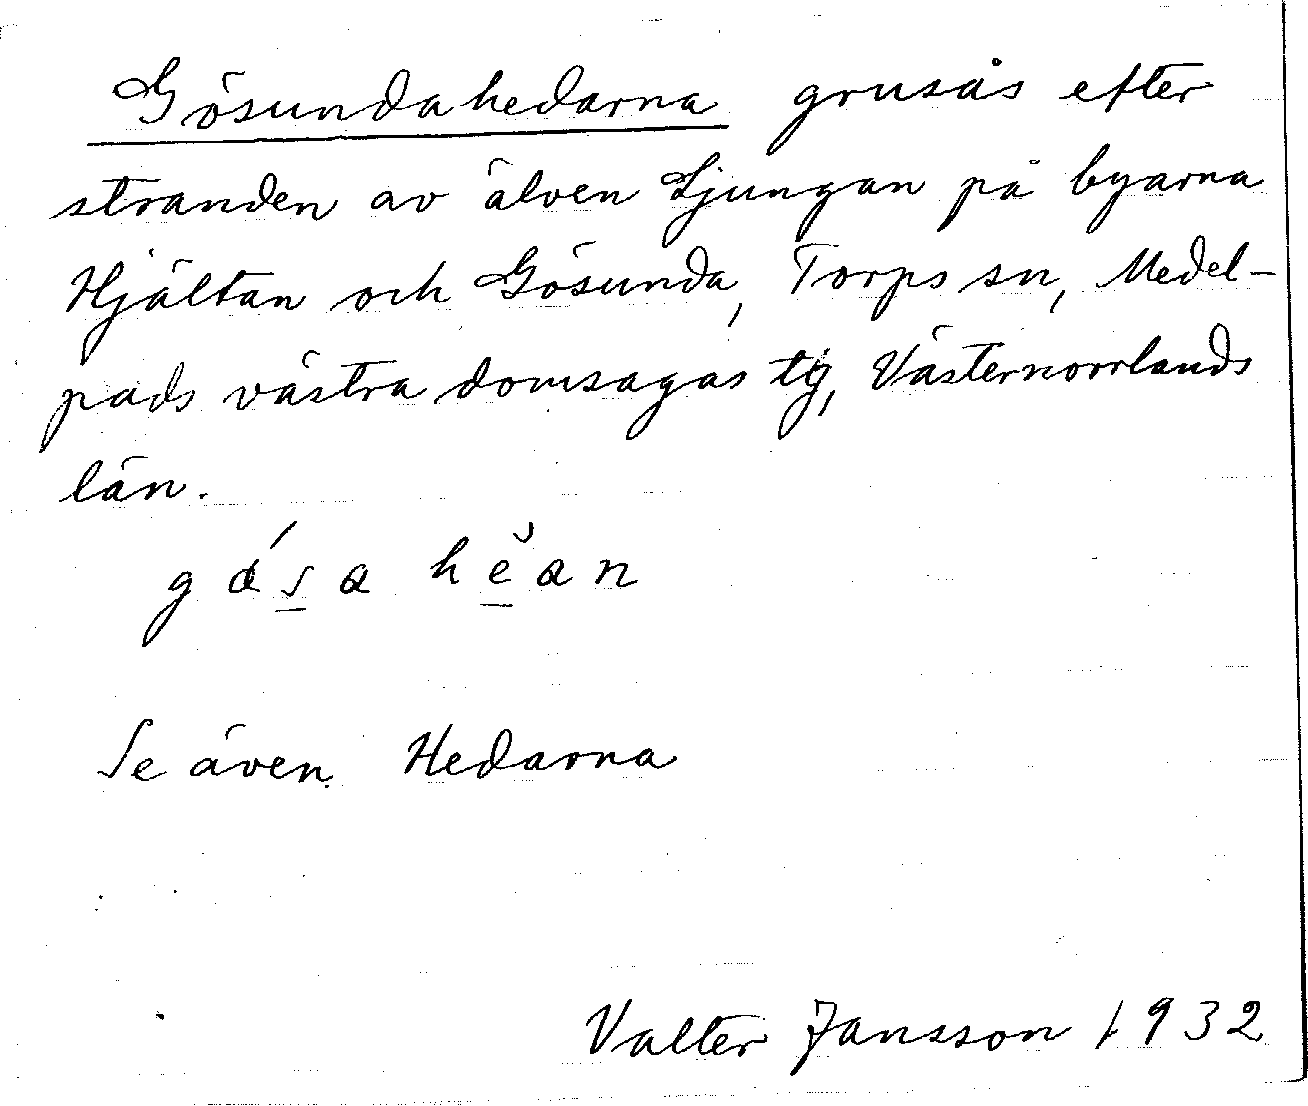 Gösundahedarna grusås efter
stranden av älven Ljungan på byarna
Hjältan och Gösunda, Torps sn, Medel-
pads västra domsagas tg, Västernorrlands
län.
Se även Hedarna
Valter Jansson 1932